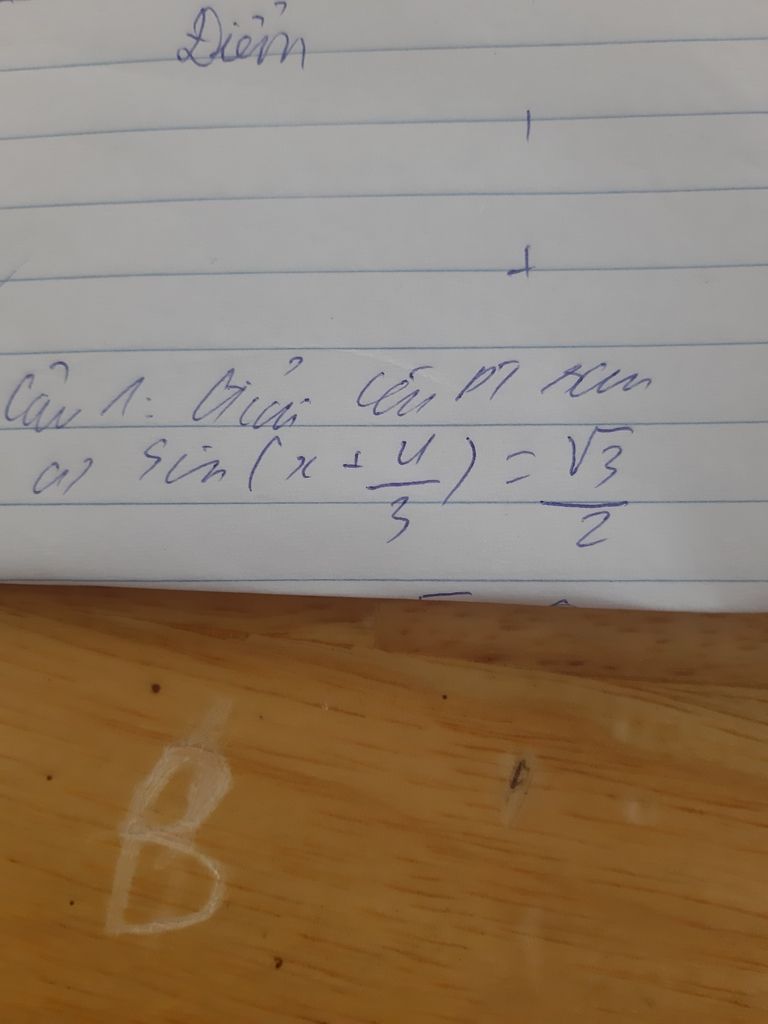 Điểm
Câu 1: Giải các PT sau
a) Sin(x + π/3) = √3/2
B